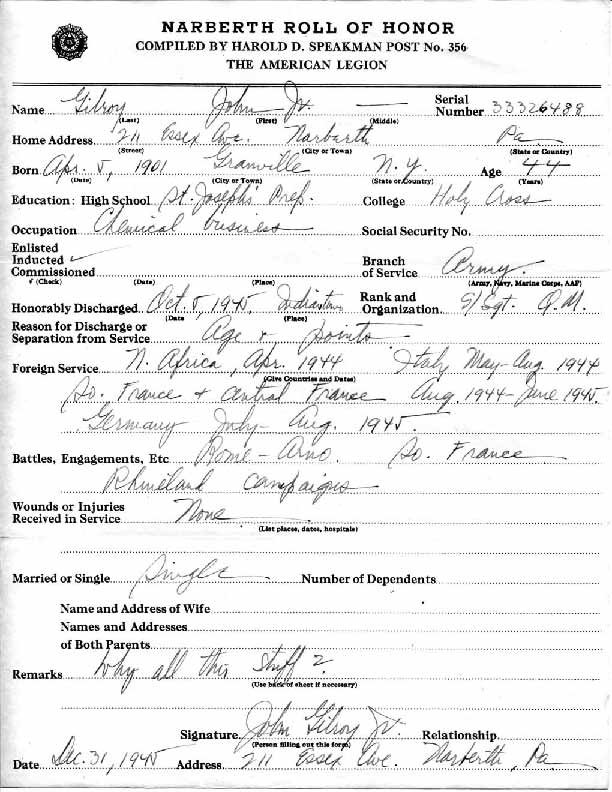 NARBERTH ROLL OF HONOR
COMPILED BY HAROLD D. SPEAKMAN POST No. 356
THE AMERICAN LEGION
Name Gilroy John Jr. — Serial Number 33326488
(Last) (First) (Middle)
Home Address 211 Essex Ave. Narberth Pa
(Street) (City or Town) (State or Country)
Born Apr. 5, 1901 Granville N.Y. Age 44
(Date) (City or Town) (State or Country) (Years)
Education: High School St. Josephs Prep. College Holy Cross
Occupation Chemical business Social Security No.
Enlisted
Inducted ✓
Commissioned Branch of Service Army.
✓ (Check) (Date) (Place) (Army, Navy, Marine Corps, AAF)
Honorably Discharged Oct. 5, 1945, Rank and Organization S/Sgt. Q.M.
(Date (Place)
Reason for Discharge or
Separation from Service Age & points
Foreign Service N. Africa, Apr. 1944 Italy May-Aug. 1944
(Give Countries and Dates)
So. France & Central France Aug. 1944-June 1945.
Germany July-Aug. 1945.
Battles, Engagements, Etc Rome-Arno. So. France
Rhineland Campaigns
Wounds or Injuries
Received in Service None
(List places, dates, hospitals)
Married or Single Single Number of Dependents
Name and Address of Wife
Names and Addresses
of Both Parents
Remarks Why all this stuff?
(Use back of sheet if necessary)
Signature John Gilroy Jr. Relationship
(Person filling out this form)
Date Dec. 31, 1945 Address 211 Essex Ave. Narberth, Pa